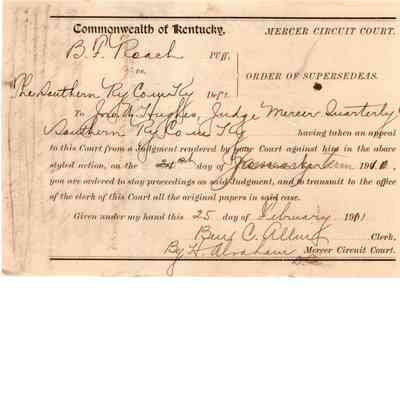 Commonwealth of Kentucky. MERCER CIRCUIT COURT.
B. F. Roach Plff.
vs. ORDER OF SUPERSEDEAS.
The Southern Ry Co in Ky Deft.
To Jno. W. Hughes, Judge Mercer Quarterly
Southern Ry Co in Ky having taken an appeal
to this Court from a Judgment rendered by your Court against him in the above
styled action, on the day of 1910,
you are ordered to stay proceedings on said Judgment, and to transmit to the office
of the clerk of this Court all the original papers in said case.
Given under my hand this 25 day of February 1911
Ben C. Allin Clerk.
By H. Abraham Mercer Circuit Court.
D.C.